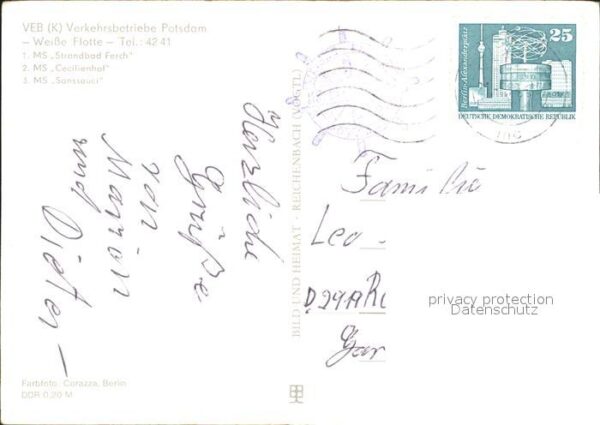 VEB (K) Verkehrsbetriebe Potsdam
– Weiße Flotte – Tel.: 42 41
1. MS „Strandbad Ferch"
2. MS „Cecilienhof"
3. MS „Sanssouci"
Herzliche
Grüße
von
Marion
und Dieter –
Farbfoto: Corazza, Berlin
DDR 0,20 M
BILD UND HEIMAT · REICHENBACH (VOGTL)
Berlin-Alexanderplatz
25
DEUTSCHE DEMOKRATISCHE REPUBLIK
Familie
Leo
Gar
privacy protection
Datenschutz